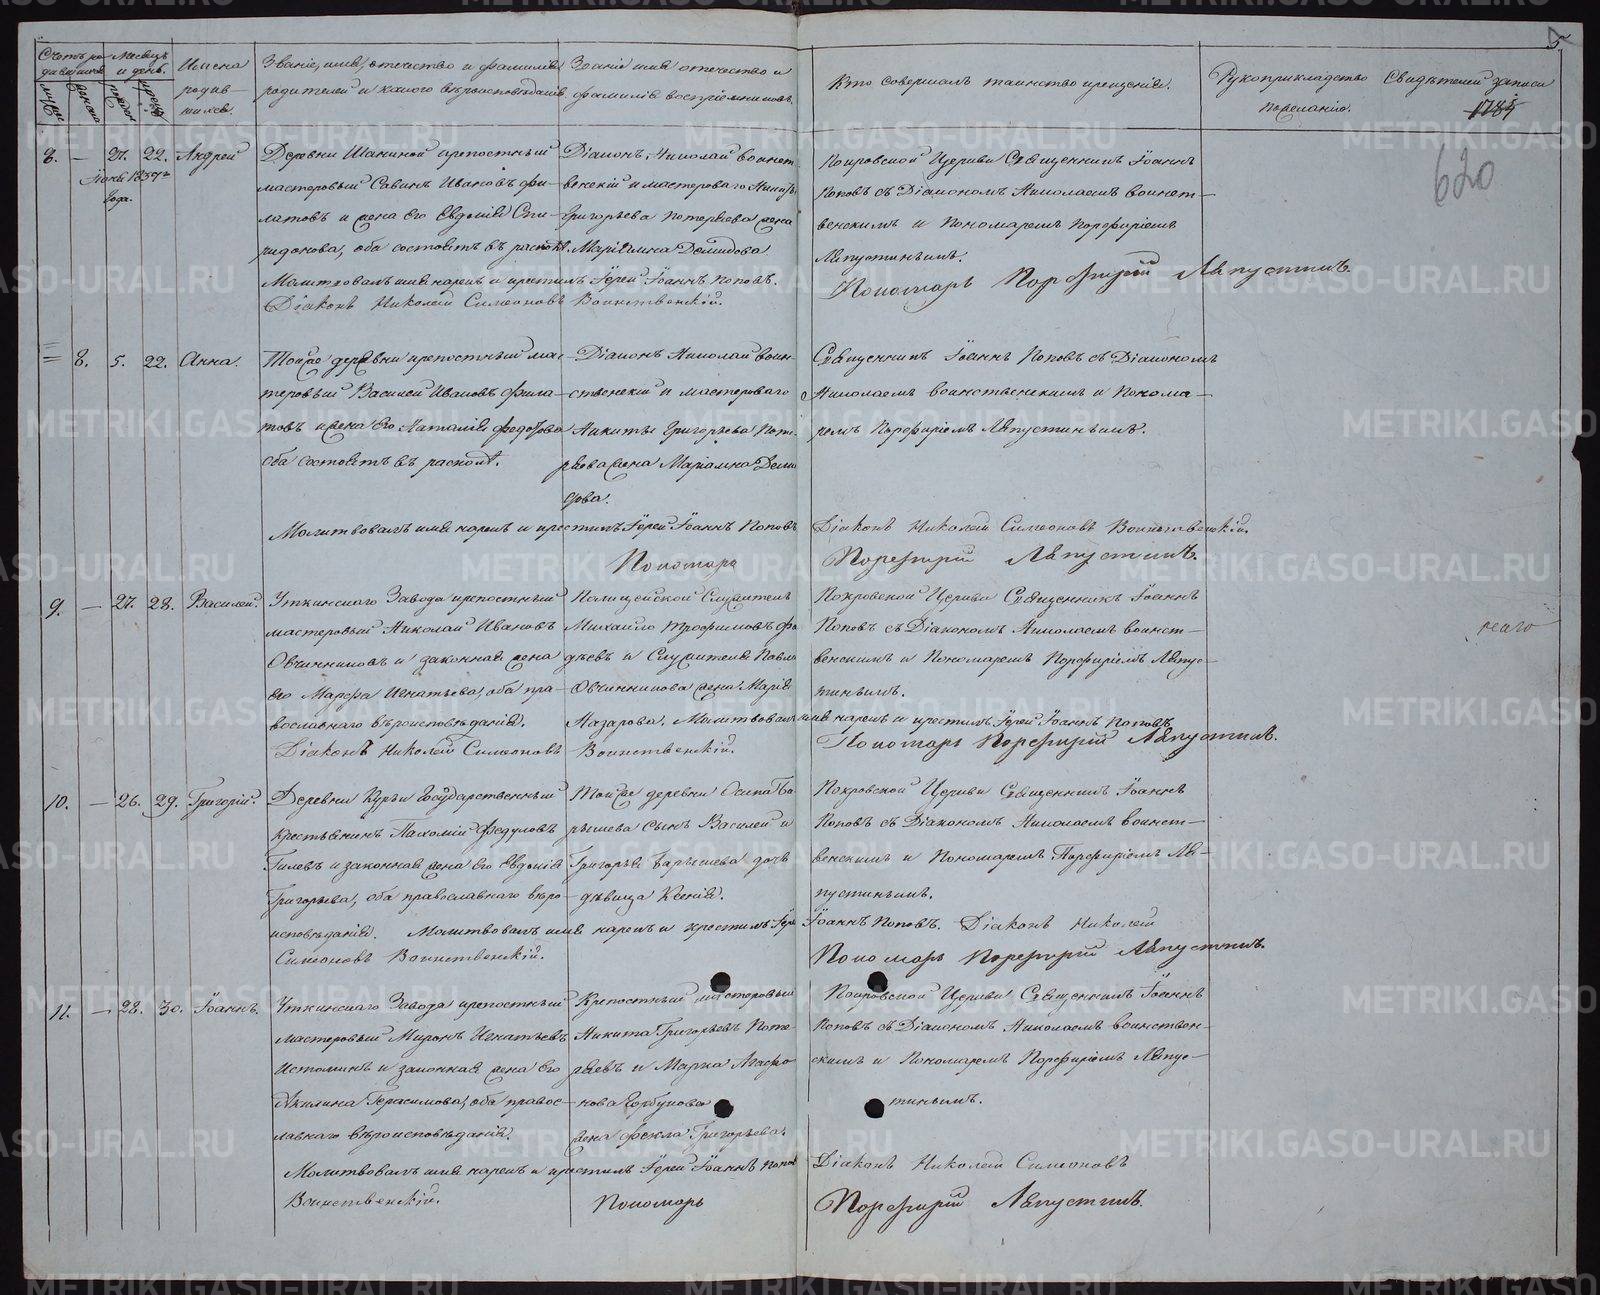 Счетъ ро- Месяцъ Имена Званіе, имя, отечество и фамилія Званіе имя отечество и Кто совершалъ таинство крещенія. Рукоприкладство Свидѣтелей записи
дившихся и день. родив- родителей и какого вѣроисповѣданія фамилія воспріемниковъ. по желанію.
шихся.
620
8. — 27. 22. Андрей Деревни крепостный Діаконъ Николай воинст- Покровской Церкви Священникъ Іоаннъ
Іюня 1857 мастеровый Савинъ Ивановъ Фи- венскій и мастероваго Никиты Поповъ съ Діакономъ Николаемъ воинст-
Года. латовъ и жена его Евдокія Спи- Григорьева Потеряева жена венскимъ и Пономаремъ Порфиріемъ
ридонова, оба состоятъ въ расколѣ Маріамна Демидова
Молитвовалъ имя нарекъ и крестилъ Іерей Іоаннъ Поповъ.
Діаконъ Николай Симеоновъ Воинственскій. Пономарь Порфирій
8. 5. 22. Анна. Той же деревни крепостный мас- Діаконъ Николай воин- Священникъ Іоаннъ Поповъ съ Діакономъ
теровый Василей Ивановъ Фила- ственскій и мастероваго Николаемъ воинственскимъ и Понома-
товъ и жена его Наталія Федотова Никиты Григорьева Поте- ремъ Порфиріемъ
Оба состоятъ въ расколѣ. ряева жена Маріамна Деми
дова.
Молитвовалъ имя нарекъ и крестилъ Іерей Іоаннъ Поповъ Діаконъ Николай Симеоновъ Воинственскій.
Пономарь Порфирій
9. — 27. 28. Василей. Уткинскаго Завода крепостный Полицейской Служитель Покровской Церкви Священникъ Іоаннъ
мастеровый Николай Ивановъ Михайло Трофимовъ Фа Поповъ съ Діакономъ Николаемъ воинст-
Овчинниковъ и законная жена дѣевъ и Служителя Павла венскимъ и Пономаремъ Порфиріемъ
его Марфа Игнатьева, оба пра- Овчинникова жена Марія
вославнаго вѣроисповѣданія. Назарова. Молитвовалъ имя нарекъ и крестилъ Іерей Іоаннъ Поповъ
Діаконъ Николай Симеоновъ Воинственскій. Пономарь Порфирій
10. — 26. 29. Григорій. Деревни Курьи Государственный Той же деревни Осипа Ба Покровской Церкви Священникъ Іоаннъ
Крестьянинъ Пахомій Федуловъ рышева Сынъ Василей и Поповъ съ Діакономъ Николаемъ воинст-
Гилевъ и законная жена его Евдокія Григорья Барышева дочь венскимъ и Пономаремъ Порфиріемъ
Григорьева, оба православнаго вѣро- дѣвица Ксенія.
исповѣданія. Молитвовалъ имя нарекъ и крестилъ Іерей Іоаннъ Поповъ. Діаконъ Николай
Симеоновъ Воинственскій. Пономарь Порфирій
11. — 28. 30. Іоаннъ. Уткинскаго Завода крепостный Крепостный мастеровый Покровской Церкви Священникъ Іоаннъ
мастеровый Миронъ Игнатьевъ Никита Григорьевъ Поте Поповъ съ Діакономъ Николаемъ воинствен-
Истоминъ и законная жена его ряевъ и Марка Агафо скимъ и Пономаремъ Порфиріемъ
Акилина Герасимова, оба правос- нова Горбунова
лавнаго вѣроисповѣданія. жена Фекла Григорьева.
Молитвовалъ имя нарекъ и крестилъ Іерей Іоаннъ Поповъ Діаконъ Николай Симеоновъ
Воинственскій. Пономарь Порфирій
METRIKI.GASO-URAL.RU